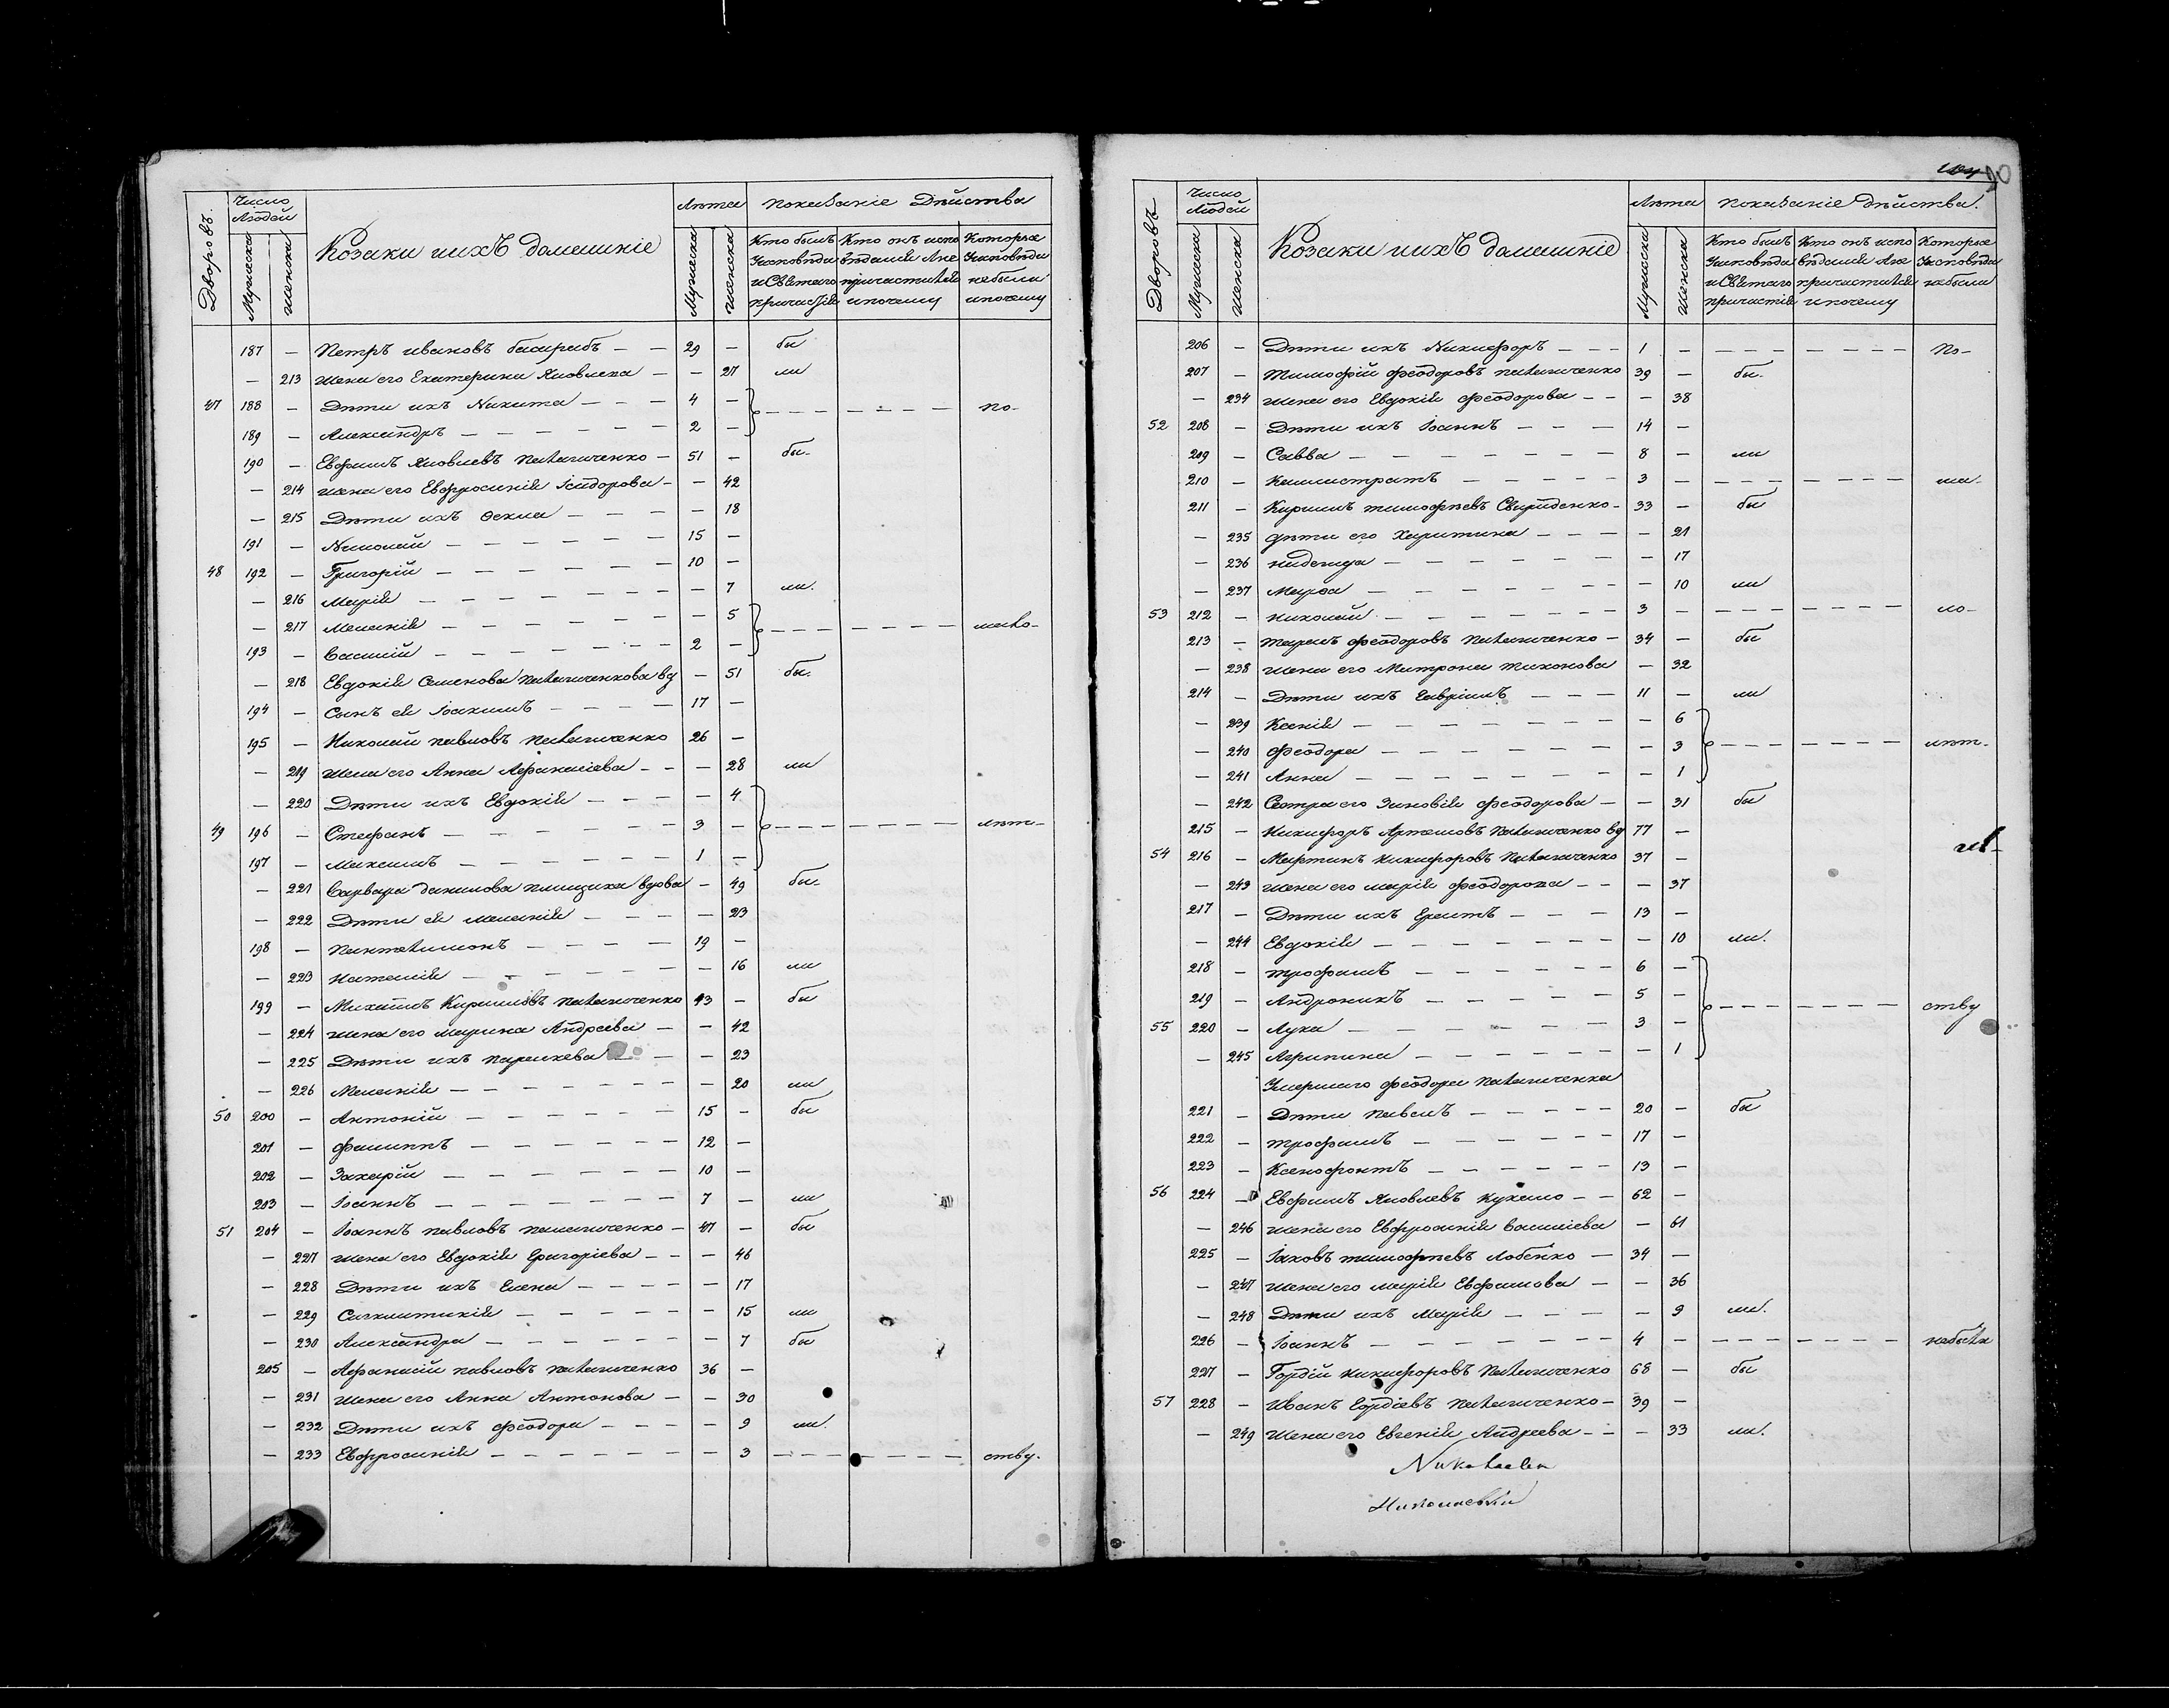 Дворовъ.
Число Людей
Мужеска
женска
Козаки иихъ домашніе
Лѣта
Мужеска
женска
показаніе Дѣйства
Кто былъ Уисповѣди иСвѣтаго причастія
Кто онъ испо вѣдался Ане причастился ипочему
Которые Уисповѣди небыли ипочему
187 — Петръ ивановъ — — 29 — бы
— 213 жена его Екатерина Яковлева — — 27 ли
47 188 — Дѣти ихъ Никита — — — 4 — по-
189 — Александръ — — — — — — 2 —
190 — Евфимъ Яковлевъ — 51 — бы-
— 214 жена его Евфросинія Ісидорова — — 42
— 215 Дѣти ихъ Ѳекла — — — — 18
191 — Николай — — — — — — 15 —
48 192 — Григорій — — — — — — 10 —
— 216 Марія — — — — — — — 7 ли.
— 217 Меланія — — — — — — — 5
193 — Василій — — — — — — — 2 —
— 218 Евдокія Семенова вд — 51 бы.
194 — Сынъ ея Іоакимъ — — — — 17 —
195 — Николай павловъ 26 —
— 219 жена его Анна Афанасіева — — — 28 ли
— 220 Дѣти ихъ Евдокія — — — — 4
49 196 — Стефанъ — — — — — — 3 — лѣт-
197 — Максимъ — — — — — — 1 —
— 221 Варвара данилова вдова — 49 бы-
— 222 Дѣти ея меланія — — — — 23
198 — Пантелимонъ — — — — 19 —
— 223 Наталія — — — — — — 16 ли
199 — Михаилъ Кириловъ 43 — бы
— 224 жена его марина Андреева — — 42
— 225 Дѣти ихъ параскева — — — 23
— 226 Меланія — — — — — — — 20 ли
50 200 — Антоній — — — — — — 15 — бы
201 — филиппъ — — — — — — 12 —
202 — Захарій — — — — — — 10 —
203 — Іоаннъ — — — — — — — 7 — ли
51 204 — Іоаннъ павловъ — 47 — бы
— 227 жена его Евдокія Григоріева — — — 46
— 228 Дѣти ихъ Елена — — — — — 17
— 229 Сигклитикія — — — — — — 15 ли
— 230 Александра — — — — — — 7 бы
205 — Афанасій павловъ 36 —
— 231 жена его Анна Антонова — — 30
— 232 Дѣти ихъ феодора — — — — 9 ли
— 233 Евфросинія — — — — — — — 3 — — — — — — — ству.
Дворовъ
Число Людей
Мужеска
женска
Козаки иихъ домашніе
Лѣта
Мужеска
женска
показаніе дѣйства.
Кто былъ Уисповѣди иСвѣтаго причастія
Кто онъ испо вѣдался Ане причастился ипочему
Которые Уисповѣди небыли
206 — Дѣти ихъ Никифоръ — — — 1 — — — — — — — — По-
207 — Тимофій феодоровъ 39 — бы-
— 234 жена его Евдокія феодорова — — — 38
52 208 — Дѣти ихъ Іоаннъ — — — 14 —
209 — Савва — — — — — — — 8 — ли
210 — Каллистратъ — — — — — 3 — — — — — — — —
211 — Кирилъ тимофѣевъ Свириденко- 33 — бы
— 235 дѣти его Харитина — — — — 21
— 236 надежда — — — — — — — 17
— 237 Марфа — — — — — — — 10 ли
53 212 — николай — — — — — — — 3 — — — — — — — — ло-
213 — феодоровъ — 34 — бы
— 238 жена его Матрона тихонова — 32
214 — Дѣти ихъ Гавріилъ — — — 11 — ли
— 239 Ксенія — — — — — — — — 6
— 240 феодора — — — — — — — 3 лѣт-
— 241 Анна — — — — — — — — 1
— 242 Сестра его Зиновія феодорова — — 31 бы
215 — Никифоръ Артемовъ вд 77 —
54 216 — Мартинъ никифоровъ 37 —
— 243 жена его марія феодорова — — — 37
217 — Дѣти ихъ — — — 13 —
— 244 Евдокія — — — — — — — 10 ли.
218 — трофимъ — — — — — — 6 —
219 — Андроникъ — — — — — 5 — ству
55 220 — Лука — — — — — — — 3 —
— 245 Агрипина — — — — — — 1
Умершаго феодора
221 — Дѣти павелъ — — — — — 20 — бы
222 — трофимъ — — — — — — 17 —
223 — Ксенофонтъ — — — — — 13 —
56 224 — Евфимъ Яковлевъ — — 62 —
— 246 жена его Евфросинія василіева — 61
225 — Іаковъ тимофѣевъ Лобенко — 34 —
— 247 жена его марія Евфимова — — 36
— 248 Дѣти ихъ Марія — — — — 9 ли.
226 — Іоаннъ — — — — — — — 4 — — — — — — — —
227 — Гордій никифоровъ 68 — бы
57 228 — Иванъ Гордіевъ — 39 —
— 249 жена его Евгенія Андреева — — — 33 ли.